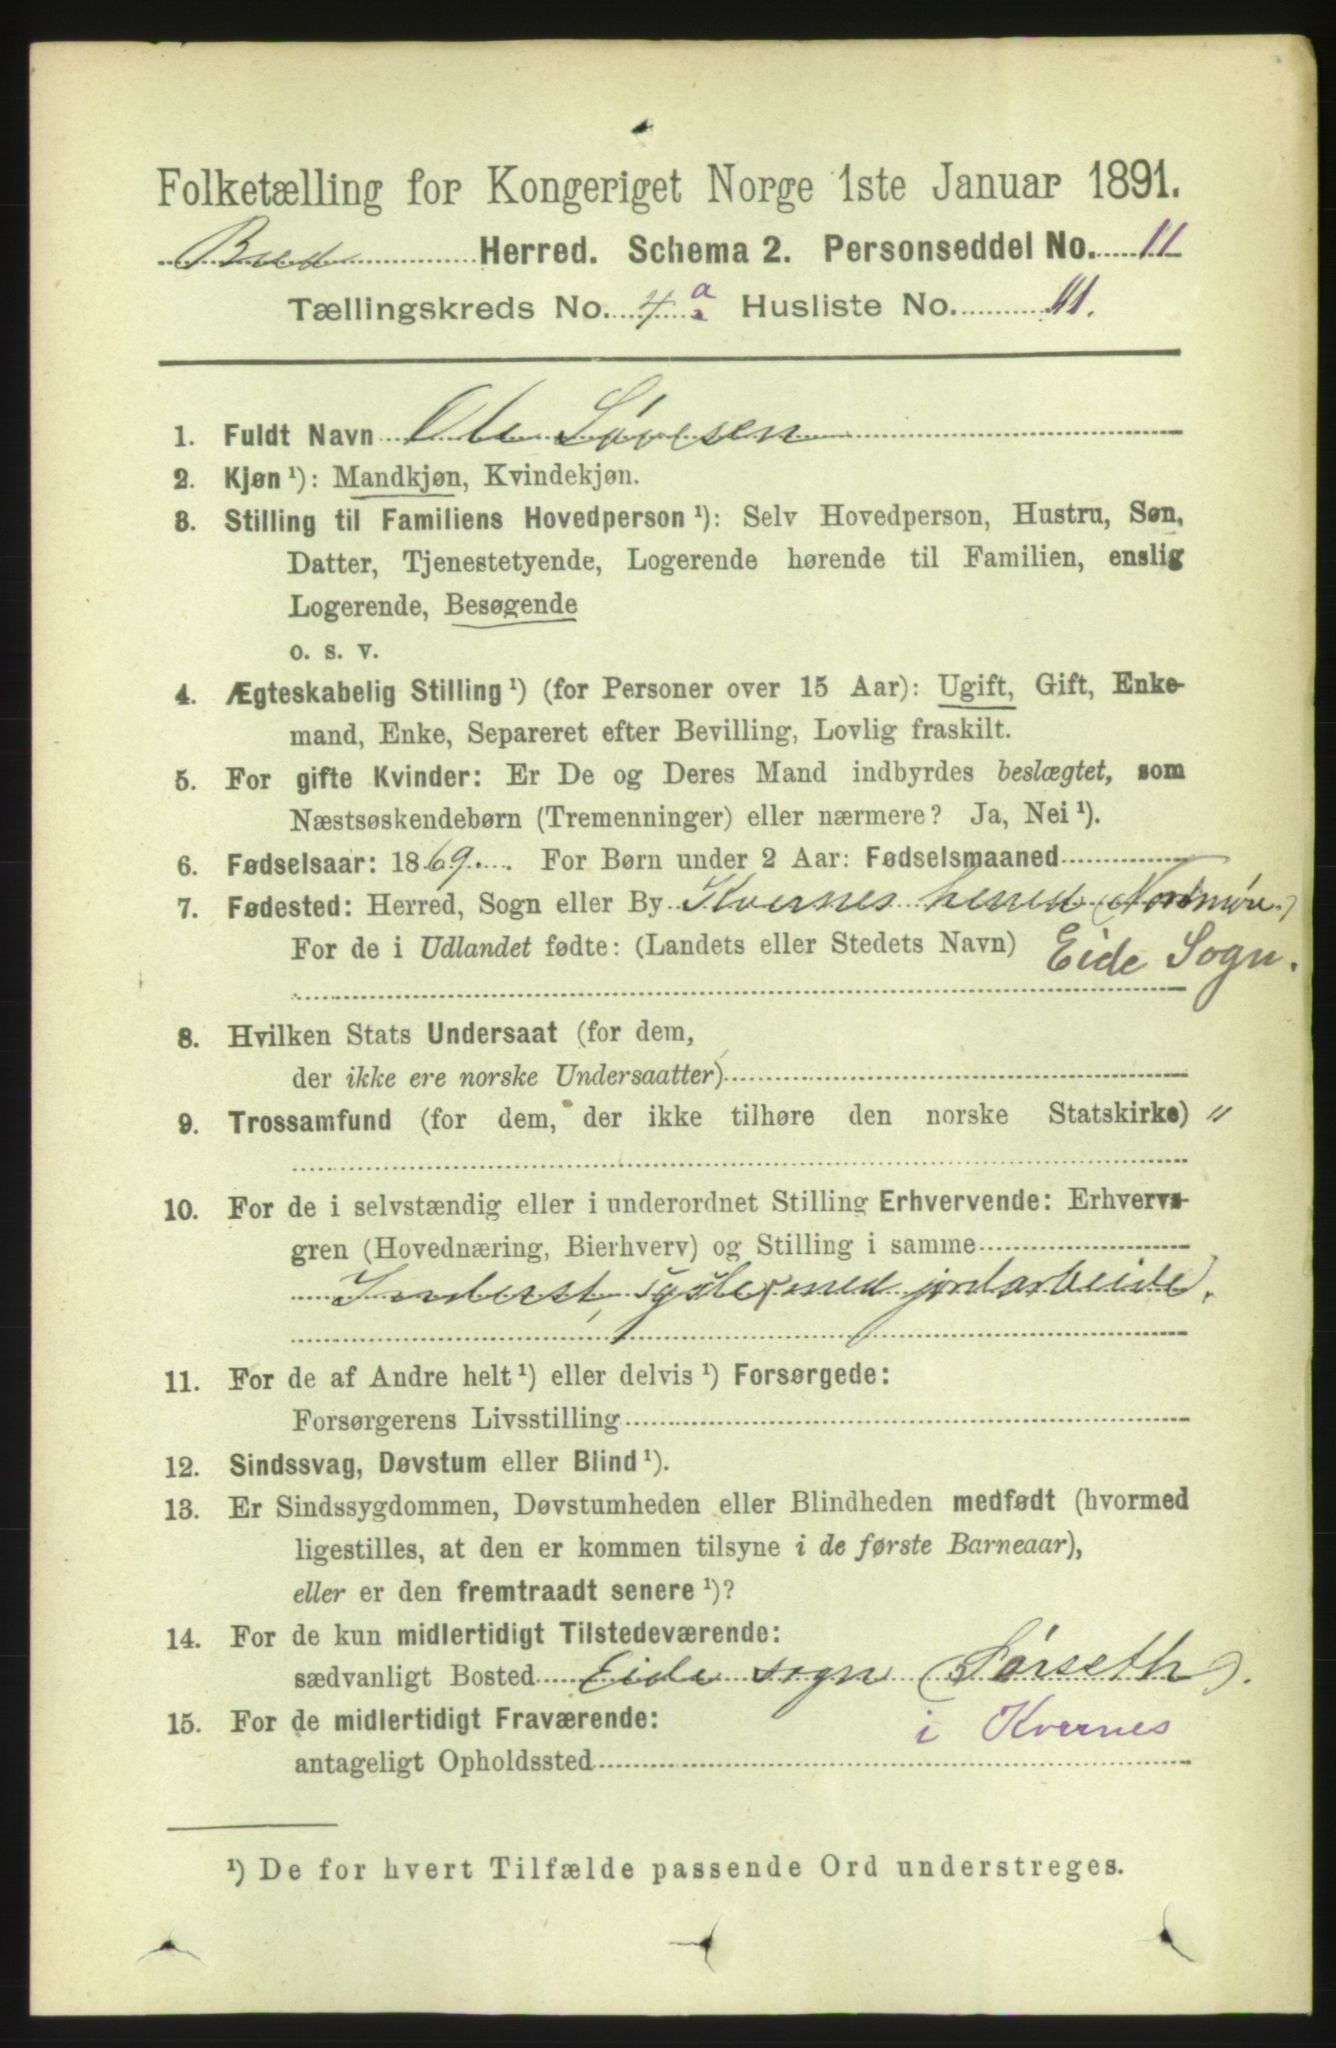 Folketælling for Kongeriget Norge 1ste Januar 1891.
Bud Herred. Schema 2. Personseddel No. 11
Tællingskreds No. 4 a Husliste No. 11.
1. Fuldt Navn Ole Iversen
2. Kjøn ¹): Mandkjøn, Kvindekjøn.
3. Stilling til Familiens Hovedperson ¹): Selv Hovedperson, Hustru, Søn,
Datter, Tjenestetyende, Logerende hørende til Familien, enslig
Logerende, Besøgende
o. s. v.
4. Ægteskabelig Stilling ¹) (for Personer over 15 Aar): Ugift, Gift, Enke-
mand, Enke, Separeret efter Bevilling, Lovlig fraskilt.
5. For gifte Kvinder: Er De og Deres Mand indbyrdes beslægtet, som
Næstsøskendebørn (Tremenninger) eller nærmere? Ja, Nei ¹).
6. Fødselsaar: 1869. For Børn under 2 Aar: Fødselsmaaned
7. Fødested: Herred, Sogn eller By Kvernes herred (Nordmøre)
For de i Udlandet fødte: (Landets eller Stedets Navn) Eide Sogn.
8. Hvilken Stats Undersaat (for dem,
der ikke ere norske Undersaatter)
9. Trossamfund (for dem, der ikke tilhøre den norske Statskirke) "
10. For de i selvstændig eller i underordnet Stilling Erhvervende: Erhvervs-
gren (Hovednæring, Bierhverv) og Stilling i samme
Inderst, sysler med jordarbeide.
11. For de af Andre helt ¹) eller delvis ¹) Forsørgede:
Forsørgerens Livsstilling
12. Sindssvag, Døvstum eller Blind ¹).
13. Er Sindssygdommen, Døvstumheden eller Blindheden medfødt (hvormed
ligestilles, at den er kommen tilsyne i de første Barneaar),
eller er den fremtraadt senere ¹)?
14. For de kun midlertidigt Tilstedeværende:
sædvanligt Bosted Eide sogn (Sørseth).
15. For de midlertidigt Fraværende: i Kvernes
antageligt Opholdssted
¹) De for hvert Tilfælde passende Ord understreges.